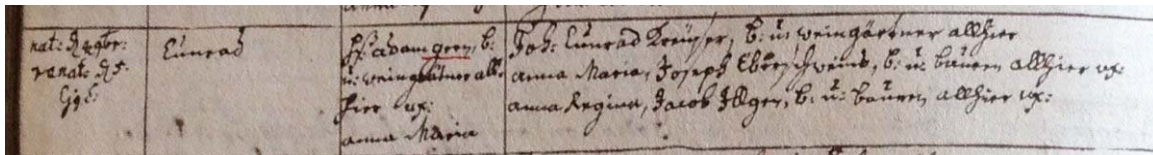 nat: d. 4 xbr:
renat: d. 5.
Ejusd:
Cunrad
Hs: Adam Green, b:
u: weingärtner all-
hier ux:
anna Maria
Joh: Cunrad Kreüser, b: u: weingärtner allhier
anna Maria, Joseph Eberschweins, b: u: bauren allhier ux:
anna Regina, Jacob Illgen, b: u: bauren allhier ux: